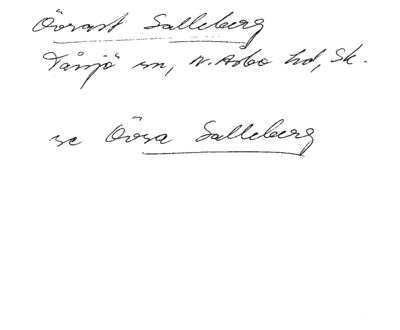 Övrast Salleberg
Tåssjö sn, N. Åsbo hd, Sk.
se Övra Salleberg